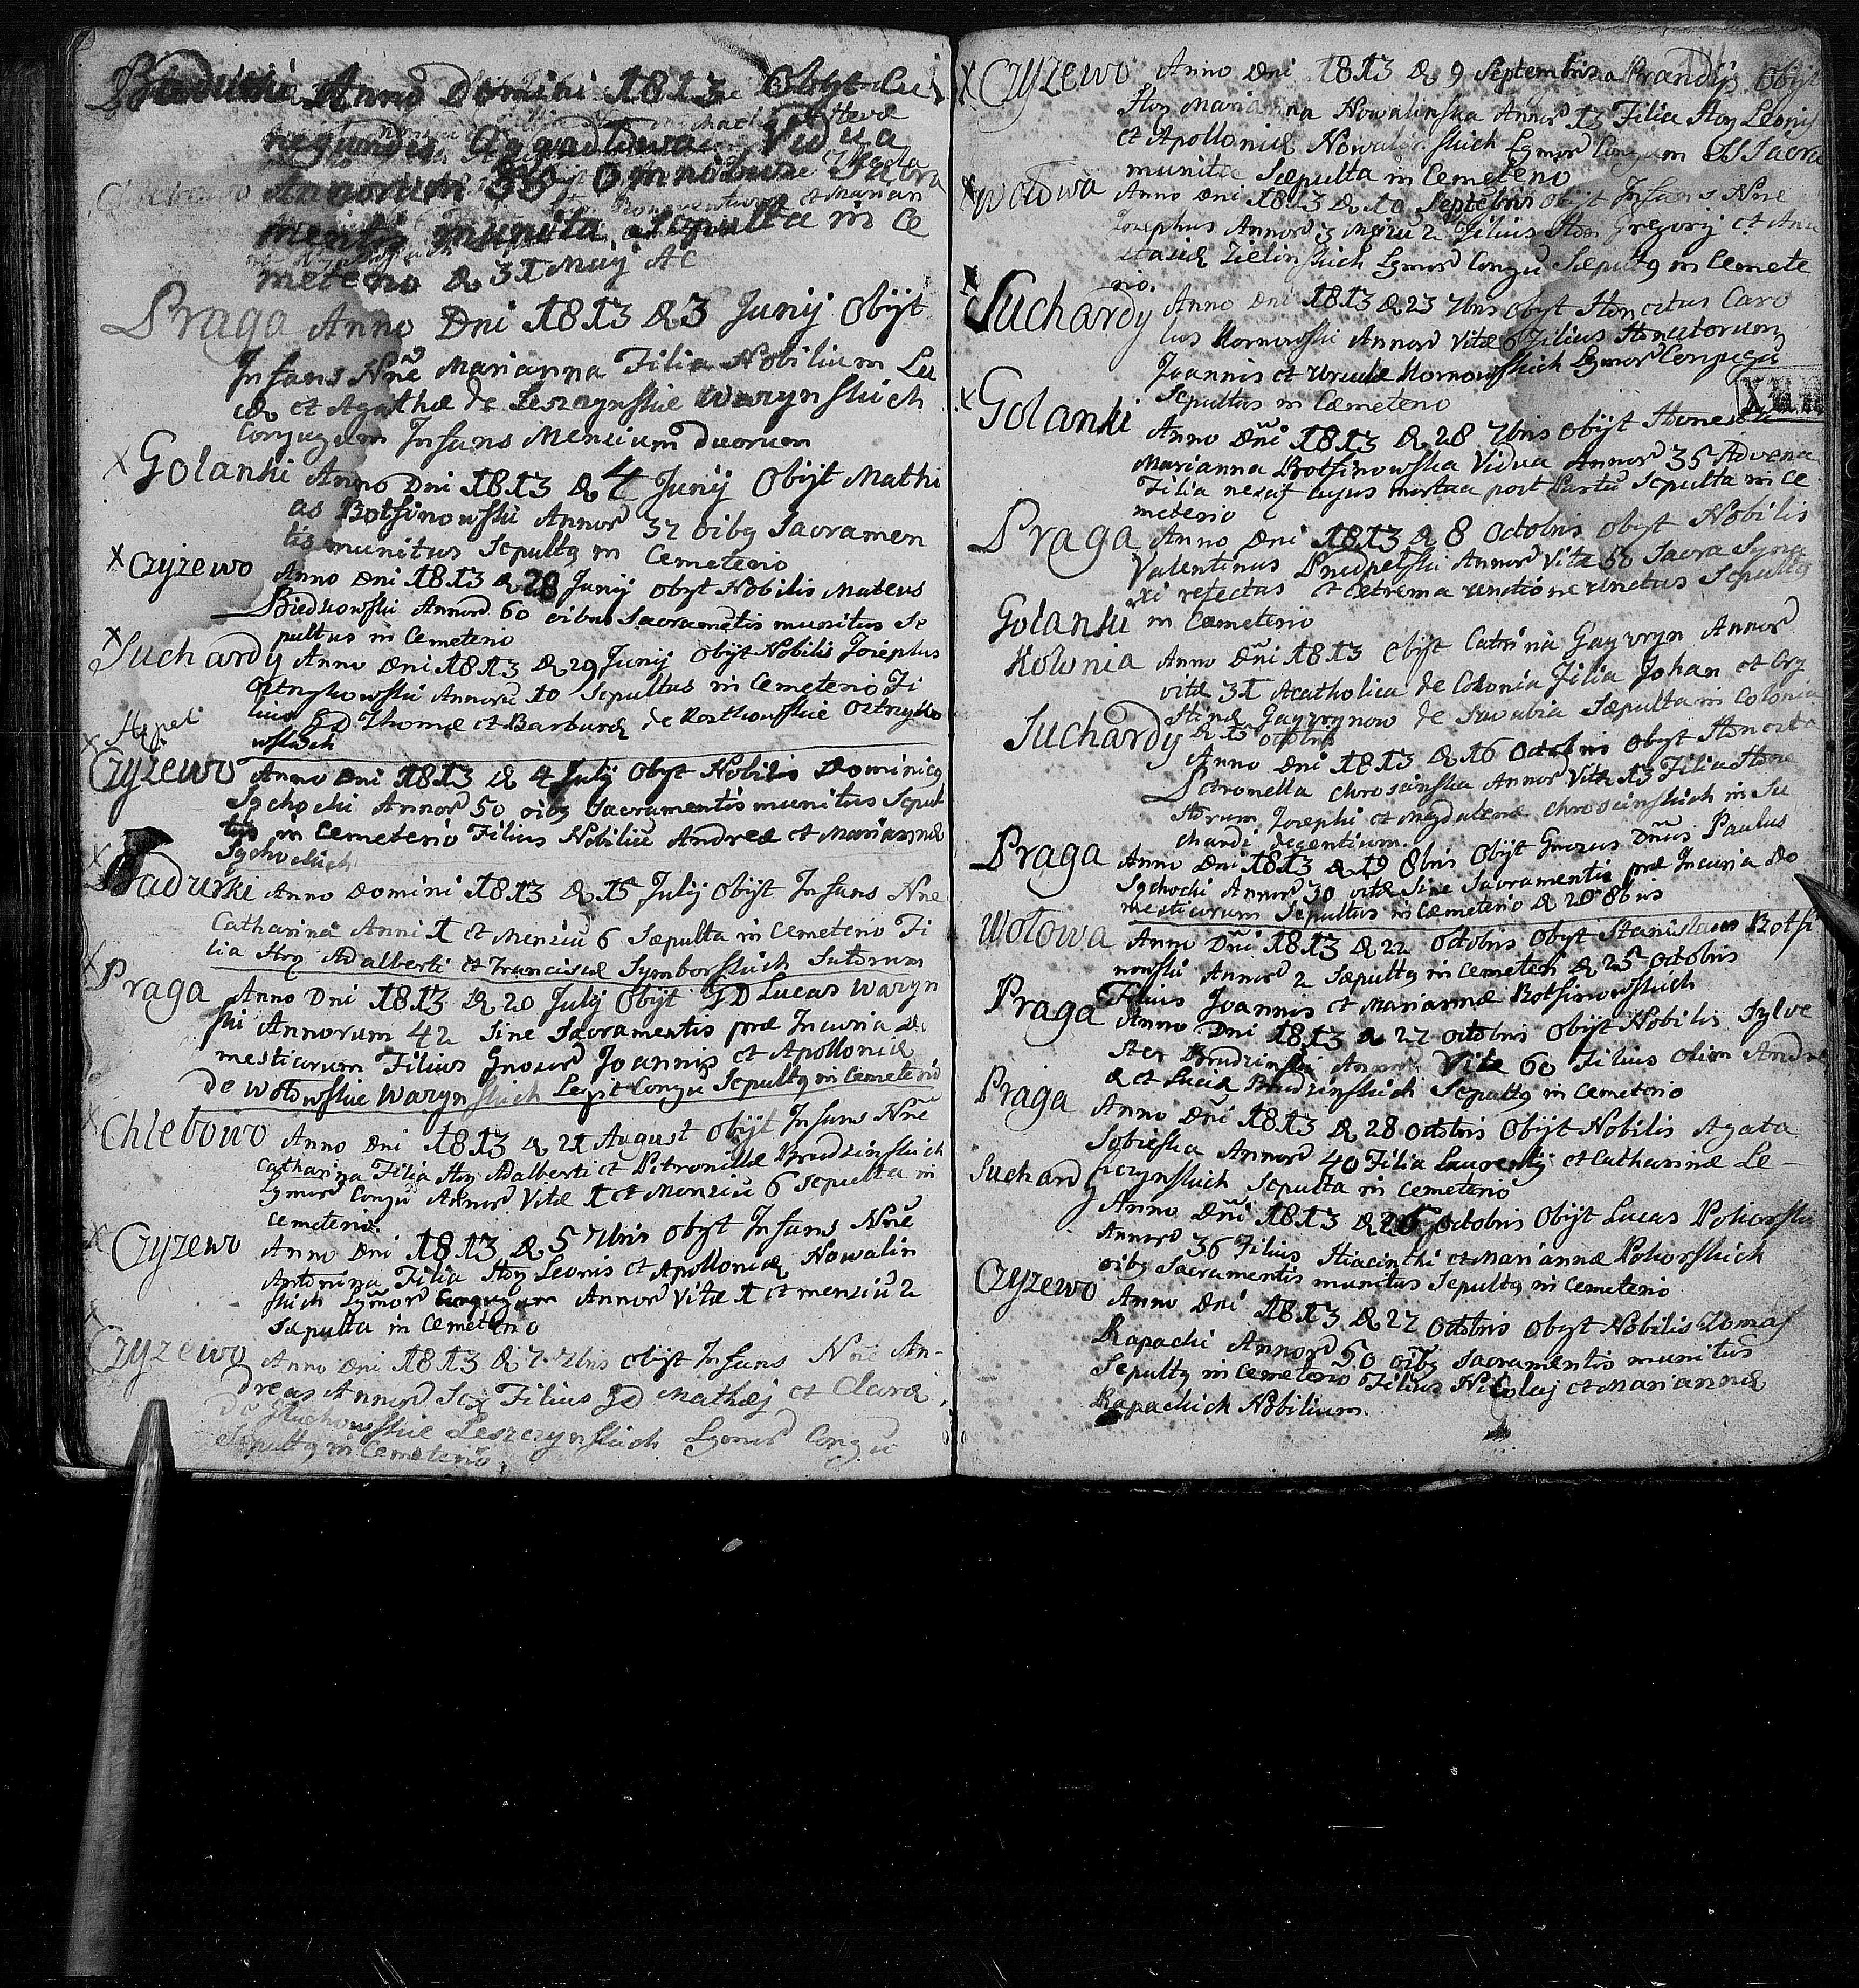 Badurki Anno Domini 1813 Obyt Cu
negundis Vidua
Annorum Omnibus Sacra
mentis munita Sepulta in Ce
meterio & 31 Maij
Praga Anno Dni 1813 & 3 Junij Obijt
Infans Nñe Marianna Filia Nobilium Lu
cæ et Agathæ de Leszczynskie Warynskich
Conjugum Infans Mensium duorum
x Golanki Anno Dni 1813 & 4 Junij Obijt Mathi
as Botsinowski Annor 32 oibq Sacramen
tis munitus Sepultq in Cemeterio
x Czyzewo Anno Dni 1813 & 28 Junij Obyt Nobilis Mateus
Biedkowski Annor 60 oibus Sacrametis munitus Se
pultus in Cemeterio
x Suchardy Anno Dni 1813 & 29 Junij Obijt Nobilis Josephus
Ostrykowski Annoru 10 Sepultus in Cemeterio Fi
lius GD Thomæ et Barbaræ de Kostkowskie Ostryko
wskich
Czyzewo Anno Dni 1813 & 4 Julij Obyt Nobilis Dominicq
Sychocki Annor 50 oibq Sacramentis munitus Sepul
tus in Cemeterio Filius Nobiliũ Andreæ et Mariannæ
Sychockich
Badurki Anno Domini 1813 & 15 Julij Obijt Infans Nñe
Catharina Anni 1 et Mensiũ 6 Sæpulta in Cemeterio Fi
lia Hoy Adalberti et Franciscæ Symborskich Sutorum
x Praga Anno Dni 1813 & 20 Julij Obijt GD Lucas Waryn
ski Annorum 42 Sine Sacramentis præ Incuria do
mesticorum Filius Gnosor Joannis et Apolloniæ
de Wotowskie Warynskich Legit Congu Sepultq in Cemeterio
Chlebowo Anno Dni 1813 & 21 August Obijt Infans Nñe
Catharina Filia Hoy Adalberti et Petronillæ Brudzinskich
Lgmor Congu Annor Vitæ 1 et Mensiũ 6 Sepulta in
Cemeterio
x Czyzewo Anno Dni 1813 & 5 7bris Obyt Infans Nñe
Antonina Filia Hoy Leonis et Apolloniæ Nowalin
skich Lgmor Conjugum Annor Vitæ 1 et mensiũ 2
Sæpulta in Cemeterio
Czyzewo Anno Dni 1813 & 7 7bris Obijt Infans Nñe An-
dreas Annor Sex Filius GD Mathej et Claræ
de Gluchowskie Leszczynskich Lgmor Congu
Sepultq in Cemeterio
x Czyzewo Anno Dni 1813 & 9 Septembris a Prandijs Obijt
Hoy Marianna Nowalinska Annor 13 Filia Hoy Leonis
et Apolloniæ Nowalinskich Lgmor Congum SS Sacra
munita Sæpulta in Cemeterio
x Wotowa Anno Dni 1813 & 10 Septebris obijt Infans Nñe
Josephus Annor 3 Mẽsiu 2 Filius Hon Gregorij et Ana
staziæ Zielinskich Lgmor Congu Sæpultq in Cemete
rio.
x Suchardy Anno Dni 1813 & 23 7bris Obyt Honestus Caro
lus Kornowski Annor Vitæ 6 Filius Honestorum
Joannis et Ursulæ Kornowskich Lgmor Conjugũ
Sepultus in Cæmeterio
x Golanki Anno Dñi 1813 & 28 7bris Obijt Honesta
Marianna Botsinowska Vidua Annor 35 Advena
Filia nescit cujus mortua post Partũ Sepulta in Ce
meterio
Praga Anno Dni 1813 & 8 Octobris Obyt Nobilis
Valentinus Annor Vitæ 50 Sacra Syna
xi refectus et extrema unctione unctus Sepultq
in Cæmeterio
Golanki
Kolonia Anno Dñi 1813 Obijt Catrina Gayvryn Annor
vitæ 31 Acatholica de Colonia Filia Johan et Cry
stinæ Gayvrynow de Suvabia Sæpulta in Colonia
& 15 Octobris
Suchardy Anno Dni 1813 & 16 Octobris Obyt Honesta
Petronella Chroscinska Annor Vitæ 13 Filia Hone
storum Josephi et Magdalenæ Chroscinskich in Su
chardi degentium.
Praga Anno Dni 1813 & 19 8bris Obijt Gnosus Dñus Paulus
Sychocki Annor 30 vitæ Sine Sacramentis præ Incuria Do
mesticorum Sepultus in Cæmeterio & 20 8brus
Wotowa Anno Dñi 1813 & 22 Octobris Obyt Stanislaus Botsi
nowski Annor 2 Sæpultq in Cemeteri & 25 Octobris
Filius Joannis et Mariannæ Botsinowskich
Praga Anno Dni 1813 & 22 Octobris Obijt Nobilis Sylve
ster Brudzinski Annor Vitæ 60 Filius olim Andre
æ et Luciæ Brudzinskich Sepultq in Cemeterio
Praga Anno Dñi 1813 & 28 Octobris Obijt Nobilis Agata
Sobieska Annor 40 Filia Laurentij et Catharinæ Le-
szczynskich Sepulta in Cemeterio
Suchardy Anno Dñi 1813 & 26 Octobris Obijt Lucas Pokorski
Annor 36 Filius Hiacinthi et Mariannæ Pokorskich
oibq Sacramentis munitus Sepultq in Cemeterio
Czyzewo Anno Dni 1813 & 22 Octobris Obyt Nobilis Tomas
Rapacki Annor 50 oibq Sacramentis munitus
Sepultq in Cemeterio Filius Nicolaj et Mariannæ
Rapackich Nobilium.